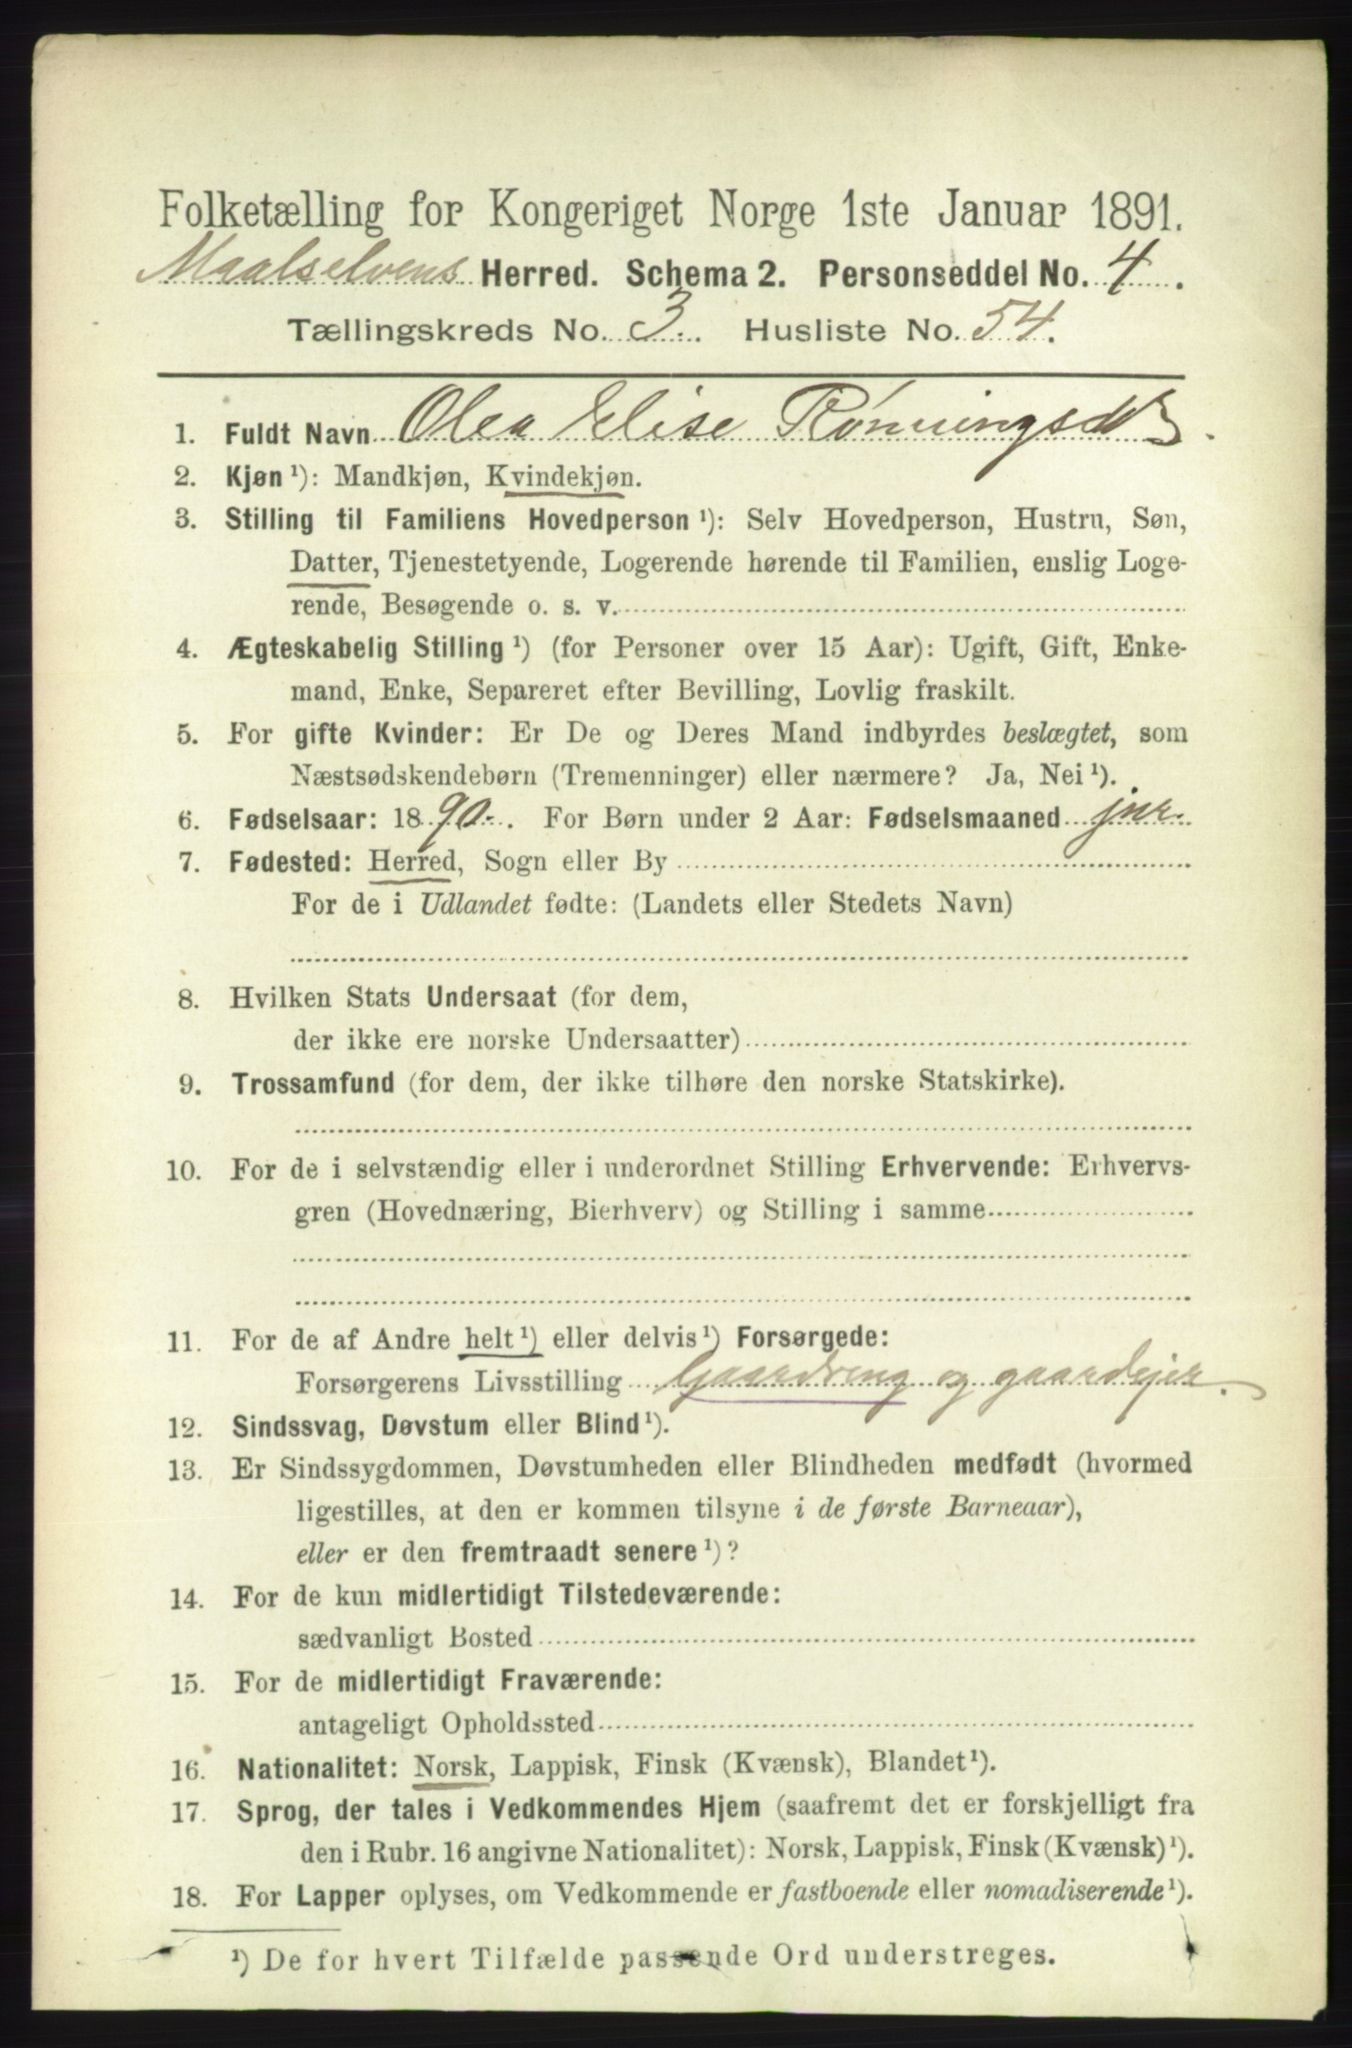 Folketælling for Kongeriget Norge 1ste Januar 1891.
Maalselvens Herred. Schema 2. Personseddel No. 4.
Tællingskreds No. 3. Husliste No. 54.
1. Fuldt Navn Olea Elise Rønningsdtr.
2. Kjøn ¹): Mandkjøn, Kvindekjøn.
3. Stilling til Familiens Hovedperson ¹): Selv Hovedperson, Hustru, Søn,
Datter, Tjenestetyende, Logerende hørende til Familien, enslig Loge-
rende, Besøgende o. s. v.
4. Ægteskabelig Stilling ¹) (for Personer over 15 Aar): Ugift, Gift, Enke-
mand, Enke, Separeret efter Bevilling, Lovlig fraskilt.
5. For gifte Kvinder: Er De og Deres Mand indbyrdes beslægtet, som
Næstsødskendebørn (Tremenninger) eller nærmere? Ja, Nei ¹).
6. Fødselsaar: 1890. For Børn under 2 Aar: Fødselsmaaned jnr.
7. Fødested: Herred, Sogn eller By
For de i Udlandet fødte: (Landets eller Stedets Navn)
8. Hvilken Stats Undersaat (for dem,
der ikke ere norske Undersaatter)
9. Trossamfund (for dem, der ikke tilhøre den norske Statskirke).
10. For de i selvstændig eller i underordnet Stilling Erhvervende: Erhvervs-
gren (Hovednæring, Bierhverv) og Stilling i samme
11. For de af Andre helt ¹) eller delvis ¹) Forsørgede:
Forsørgerens Livsstilling Gaardbrug og gaardejer.
12. Sindssvag, Døvstum eller Blind ¹).
13. Er Sindssygdommen, Døvstumheden eller Blindheden medfødt (hvormed
ligestilles, at den er kommen tilsyne i de første Barneaar),
eller er den fremtraadt senere ¹)?
14. For de kun midlertidigt Tilstedeværende:
sædvanligt Bosted
15. For de midlertidigt Fraværende:
antageligt Opholdssted
16. Nationalitet: Norsk, Lappisk, Finsk (Kvænsk), Blandet ¹).
17. Sprog, der tales i Vedkommendes Hjem (saafremt det er forskjelligt fra
den i Rubr. 16 angivne Nationalitet): Norsk, Lappisk, Finsk (Kvænsk) ¹).
18. For Lapper oplyses, om Vedkommende er fastboende eller nomadiserende ¹).
¹) De for hvert Tilfælde passende Ord understreges.